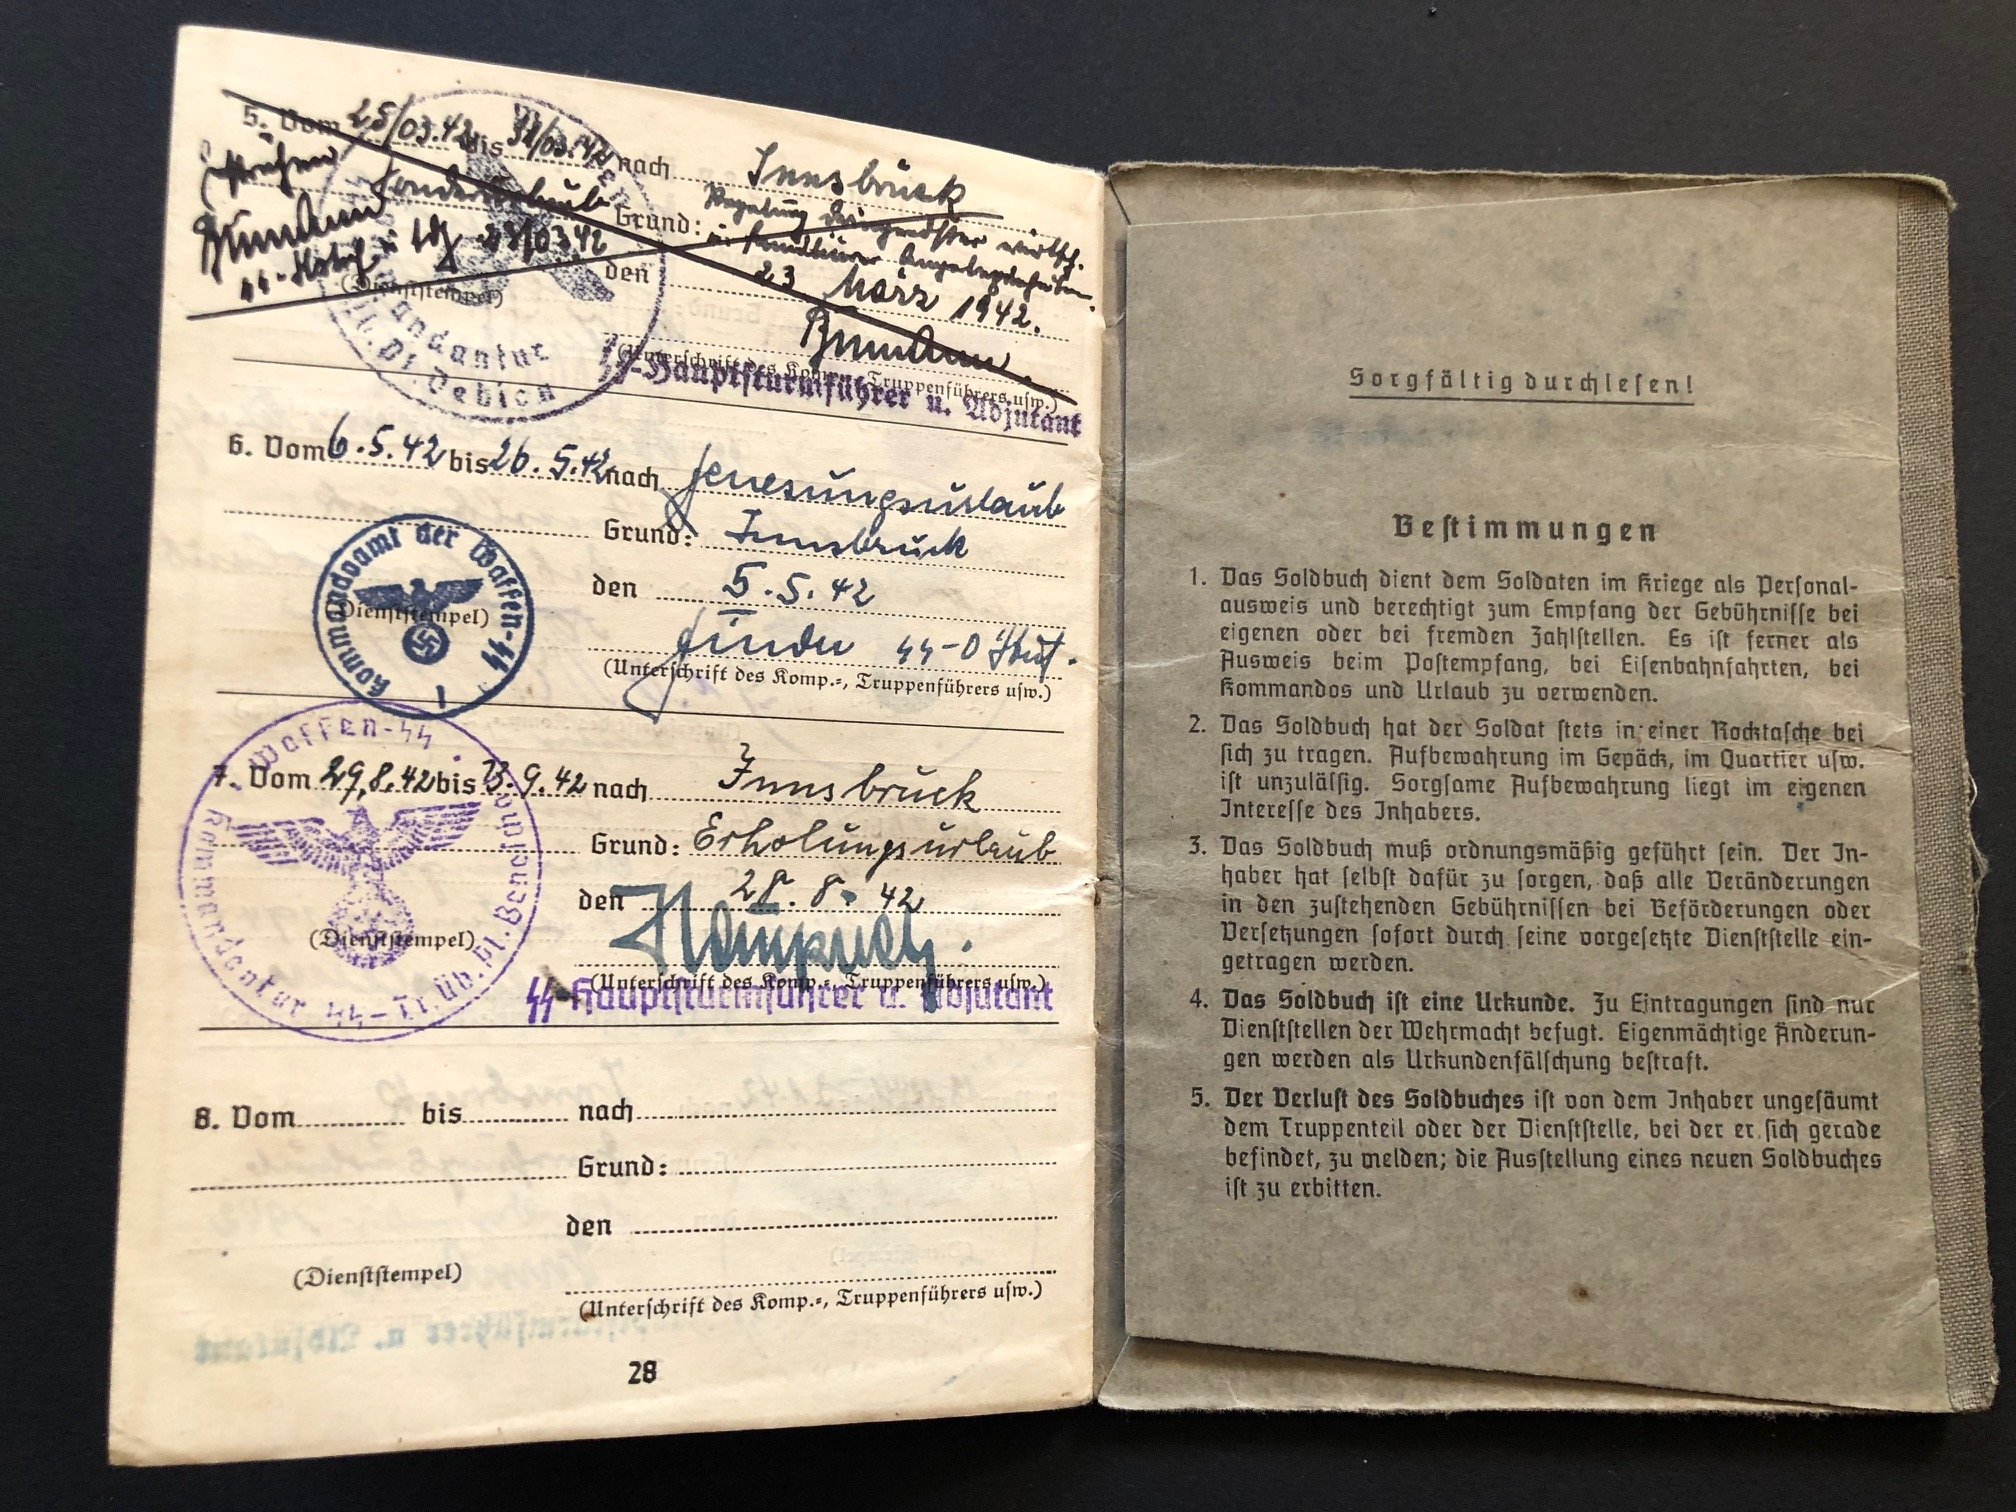 5. Vom 25/03.42 bis 31/03.42 nach Innsbruck
Sonderurlaub Grund: Regelung dringendster wirtsch.
u. familiärer Angelegenheiten.
23/03.42 den 23 März 1942.
(Dienststempel)
(Unterschrift des Komp.-, Truppenführers usw.)
SS-Hauptsturmführer u. Adjutant
Waffen-SS
Kommandantur
SS-Tr. Üb. Pl. Debica
6. Vom 6.5.42 bis 26.5.42 nach Genesungsurlaub
Grund: Innsbruck
den 5.5.42
SS-O'Stuf.
(Dienststempel)
(Unterschrift des Komp.-, Truppenführers usw.)
Kommandoamt der Waffen-SS
1
7. Vom 29.8.42 bis 13.9.42 nach Innsbruck
Grund: Erholungsurlaub
den 28.8.42
(Dienststempel)
(Unterschrift des Komp.-, Truppenführers usw.)
SS-Hauptsturmführer u. Adjutant
Waffen-SS
Kommandantur SS-Tr. Üb. Pl. Beneschau
8. Vom bis nach
Grund:
den
(Dienststempel)
(Unterschrift des Komp.-, Truppenführers usw.)
28
Sorgfältig durchlesen!
Bestimmungen
1. Das Soldbuch dient dem Soldaten im Kriege als Personal-
ausweis und berechtigt zum Empfang der Gebührnisse bei
eigenen oder bei fremden Zahlstellen. Es ist ferner als
Ausweis beim Postempfang, bei Eisenbahnfahrten, bei
Kommandos und Urlaub zu verwenden.
2. Das Soldbuch hat der Soldat stets in einer Rocktasche bei
sich zu tragen. Aufbewahrung im Gepäck, im Quartier usw.
ist unzulässig. Sorgsame Aufbewahrung liegt im eigenen
Interesse des Inhabers.
3. Das Soldbuch muß ordnungsmäßig geführt sein. Der In-
haber hat selbst dafür zu sorgen, daß alle Veränderungen
in den zustehenden Gebührnissen bei Beförderungen oder
Versetzungen sofort durch seine vorgesetzte Dienststelle ein-
getragen werden.
4. Das Soldbuch ist eine Urkunde. Zu Eintragungen sind nur
Dienststellen der Wehrmacht befugt. Eigenmächtige Änderun-
gen werden als Urkundenfälschung bestraft.
5. Der Verlust des Soldbuches ist von dem Inhaber ungesäumt
dem Truppenteil oder der Dienststelle, bei der er sich gerade
befindet, zu melden; die Ausstellung eines neuen Soldbuches
ist zu erbitten.